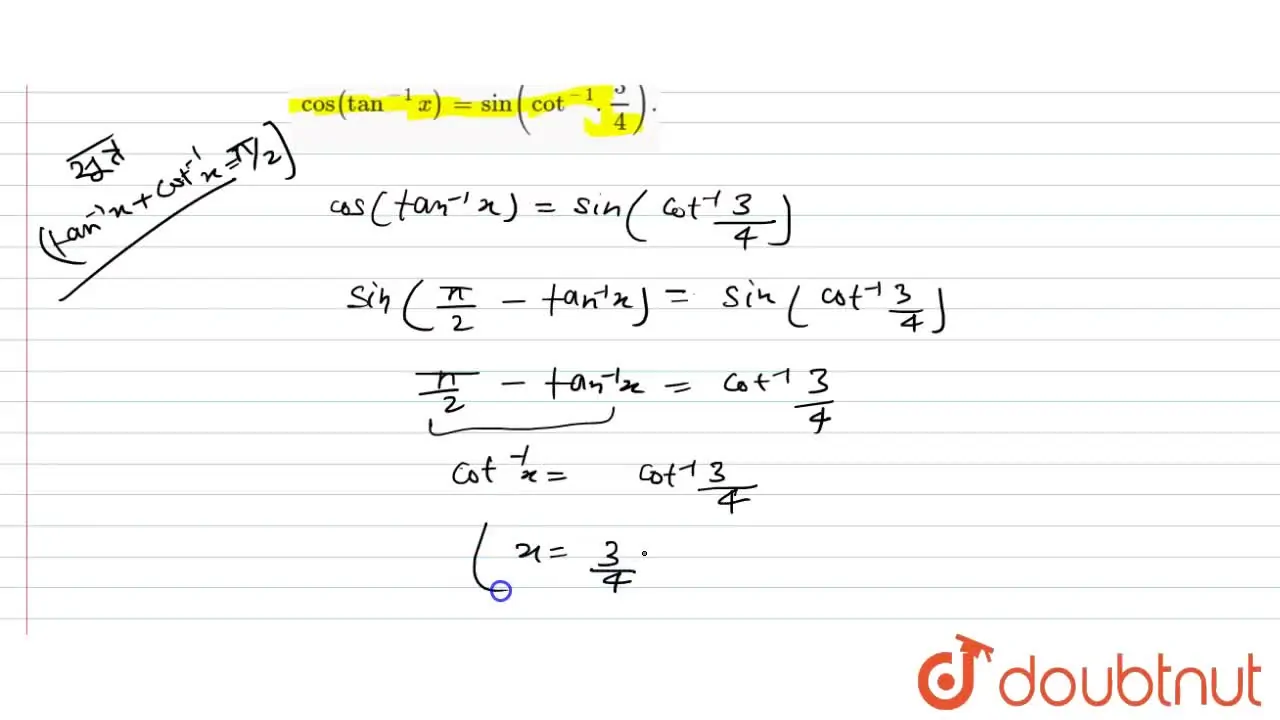 cos(tan⁻¹ x) = sin(cot⁻¹ . 3/4).
(tan⁻¹x + cot⁻¹x = π/2)
cos(tan⁻¹x) = sin(cot⁻¹ 3/4)
sin(π/2 − tan⁻¹x) = sin(cot⁻¹ 3/4)
π/2 − tan⁻¹x = cot⁻¹ 3/4
cot⁻¹x = cot⁻¹ 3/4
x = 3/4
doubtnut